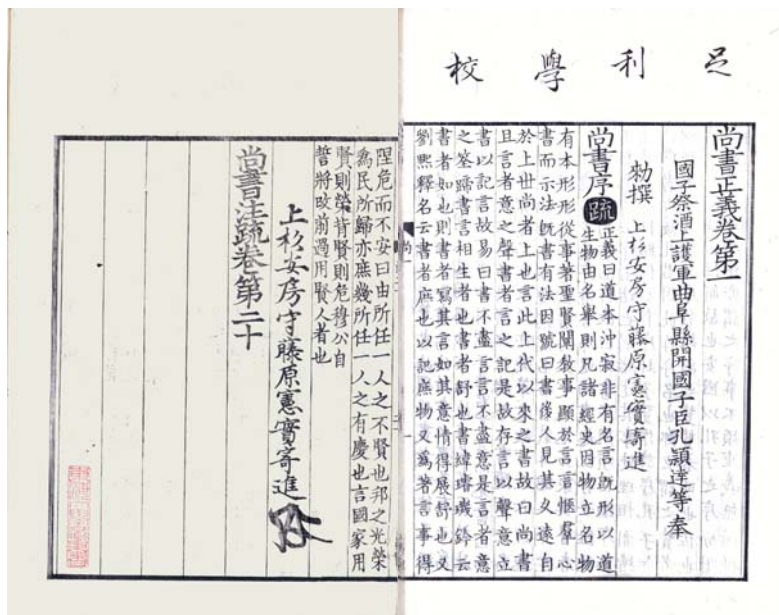 足利學校
尚書正義卷第一
國子祭酒上護軍曲阜縣開國子臣孔穎達等奉
勑撰 上杉安房守藤原憲實寄進
尚書序 疏 正義曰道本沖寂非有名言既形以道
生物由名舉則凡諸經史因物立名物
有本形形從事著聖賢闡敎事顯於言言愜羣心
書而示法既書有法因號曰書後人見其久遠自
於上世尚者上也言此上代以來之書故曰尚書
且言者意之聲書者言之記是故存言以聲意立
書以記言故易曰書不盡言言不盡意是言者意
之筌蹄書言相生者也書者舒也書緯璿璣鈐云
書者如也則書者寫其言如其意情得展舒也又
劉熙釋名云書者庶也以記庶物又爲著言事得
尚一
隉危而不安曰由所任一人之不賢也邦之光榮
爲民所歸亦庶幾所任一人之有慶也言國家用
賢則榮背賢則危穆公自
誓將改前過用賢人者也
上杉安房守藤原憲實寄進
尚書注疏卷第二十